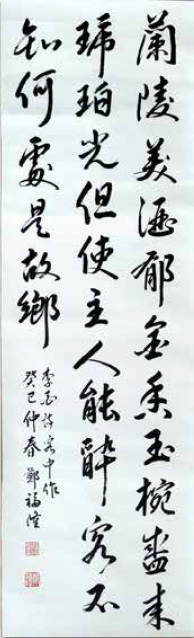 蘭陵美酒郁金香玉椀盛来
琥珀光但使主人能醉客不
知何處是故鄉
李白詩客中作
癸巳仲春 鄭福隆